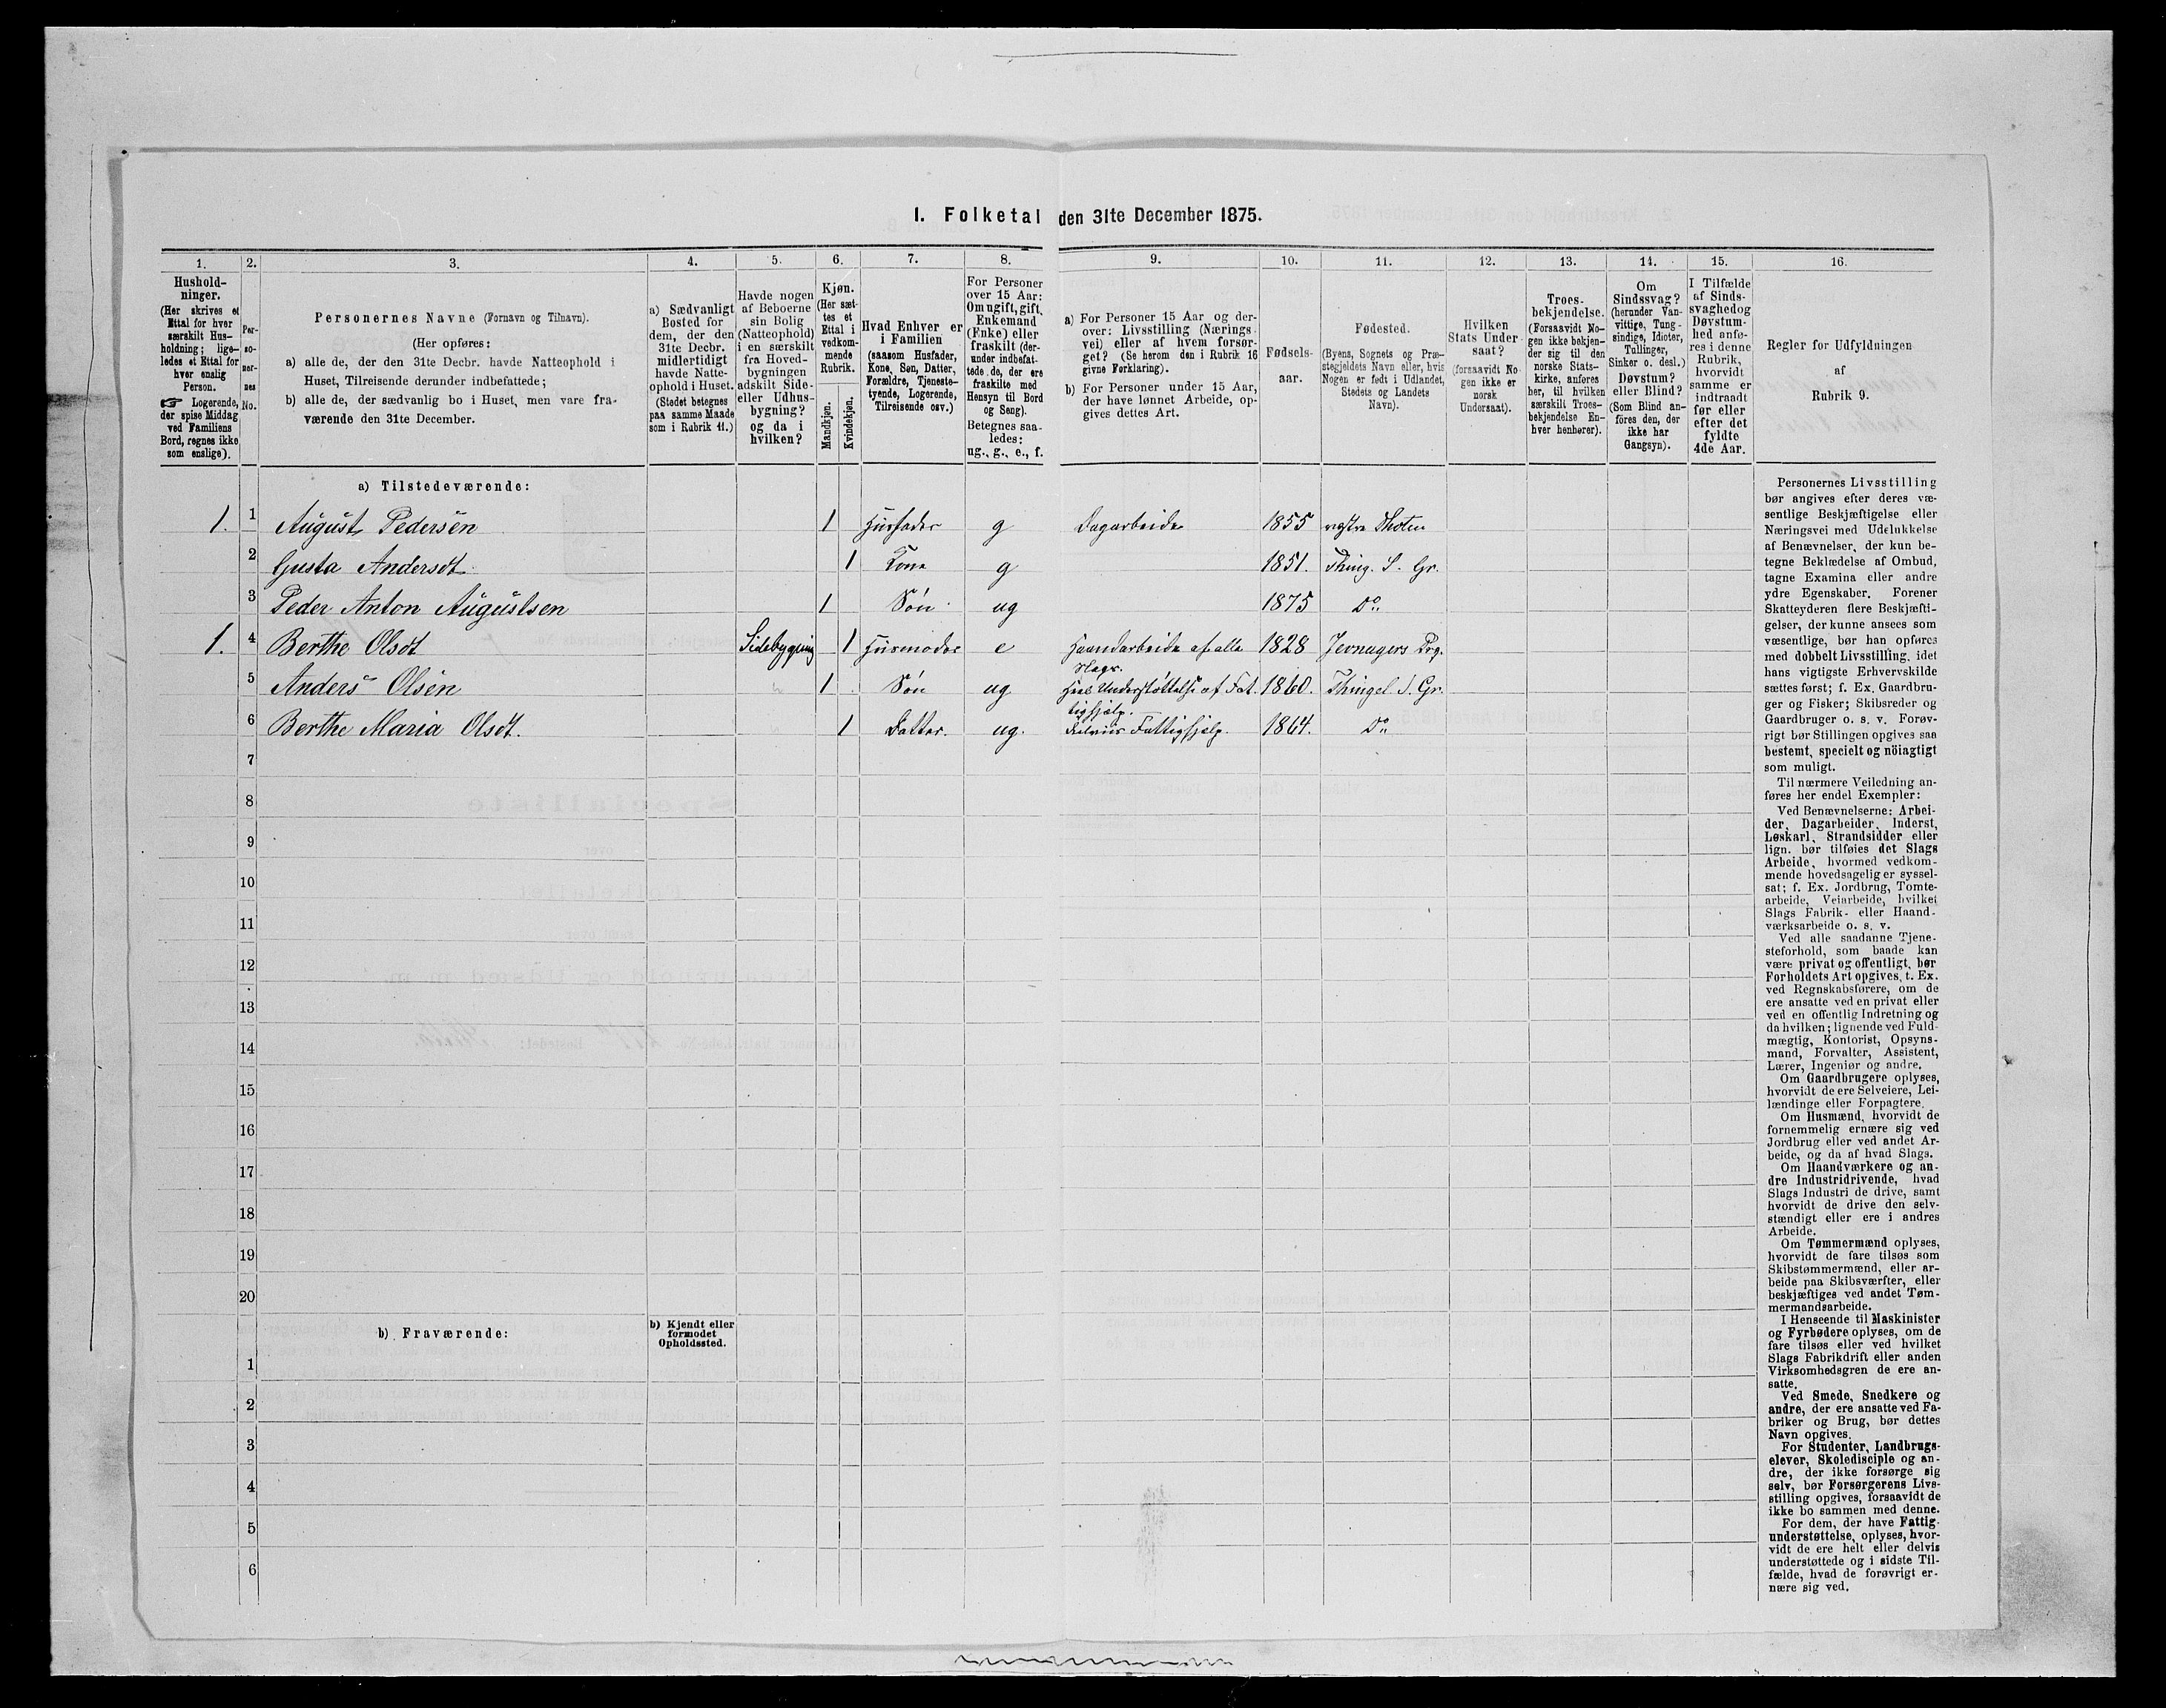 I. Folketal den 31te December 1875.
1.
Hushold-
ninger.
(Her skrives et
Ettal for hver
særskilt Hus-
holdning; lige-
ledes et Ettal for
hver enslig
Person.
☞ Logerende,
der spise Middag
ved Familiens
Bord, regnes ikke
som enslige).
2.
Per-
so-
ner-
nes
No.
3.
Personernes Navne (Fornavn og Tilnavn).
(Her opføres:
a) alle de, der den 31te Decbr. havde Natteophold i
Huset, Tilreisende derunder indbefattede;
b) alle de, der sædvanlig bo i Huset, men vare fra-
værende den 31te December.
4.
a) Sædvanligt
Bosted for
dem, der den
31te Decbr.
midlertidigt
havde Natte-
ophold i Huset.
(Stedet betegnes
paa samme Maade
som i Rubrik 11.)
5.
Havde nogen
af Beboerne
sin Bolig
(Natteophold)
i en særskilt
fra Hoved-
bygningen
adskilt Side-
eller Udhus-
bygning?
og da i
hvilken?
6.
Kjøn.
(Her sæt-
tes et
Ettal i
vedkom-
mende
Rubrik.
Mandkjøn.
Kvindekjøn.
7.
Hvad Enhver er
i Familien
(saasom Husfader,
Kone, Søn, Datter,
Forældre, Tjeneste-
tyende, Logerende,
Tilreisende osv.)
8.
For Personer
over 15 Aar:
Om ugift, gift,
Enkemand
(Enke) eller
fraskilt (der-
under indbefat-
tede de, der ere
fraskilte med
Hensyn til Bord
og Seng).
Betegnes saa-
ledes:
ug., g., e., f.
9.
a) For Personer 15 Aar og der-
over: Livsstilling (Nærings-
vei) eller af hvem forsør-
get? (Se herom den i Rubrik 16
givne Forklaring).
b) For Personer under 15 Aar,
der have lønnet Arbeide, op-
gives dettes Art.
10.
Fødsels-
aar.
11.
Fødested.
(Byens, Sognets og Præ-
stegjeldets Navn eller, hvis
Nogen er født i Udlandet,
Stedets og Landets
Navn).
12.
Hvilken
Stats Under-
saat?
(forsaavidt No-
gen ikke er
norsk
Undersaat).
13.
Troes-
bekjendelse.
(Forsaavidt No-
gen ikke bekjen-
der sig til den
norske Stats-
kirke, anføres
her, til hvilken
særskilt Troes-
bekjendelse En-
hver henhører).
14.
Om
Sindssvag?
(herunder Van-
vittige, Tung-
sindige, Idioter,
Tullinger,
Sinker o. desl.)
Døvstum?
eller Blind?
(Som Blind an-
føres den, der
ikke har
Gangsyn).
15.
I Tilfælde
af Sinds-
svaghed og
Døvstum-
hed anfø-
res i denne
Rubrik,
hvorvidt
samme er
indtraadt
før eller
efter det
fyldte
4de Aar.
16.
Regler for Udfyldningen
af
Rubrik 9.
a) Tilstedeværende:
1. 1 August Pedersen 1 Husfader g Dagarbeider 1855 vestre Thoten
2 Gusta Andersdt. 1 Kone g 1851. Thing. S. Gr.
3 Peder Anton Augustsen 1 Søn ug 1875 Do.
1. 4 Berthe Olsdt Sidebygning 1 Husmoder e Haandarbeide af alle Slags. 1828 Jevnagers Prg.
5 Anders Olsen 1 Søn ug Heel Understøttelse af Fattighjælp. 1860. Thingel. S. Gr.
6 Berthe Maria Olsdt. 1 Datter. ug. delviis Fattighjælp. 1864. Do
7
8
9
10
11
12
13
14
15
16
17
18
19
20
b) Fraværende:
b) Kjendt eller
formodet
Opholdssted.
1
2
3
4
5
6
Personernes Livsstilling
bør angives efter deres væ-
sentlige Beskjæftigelse eller
Næringsvei med Udelukkelse
af Benævnelser, der kun be-
tegne Beklædelse af Ombud,
tagne Examina eller andre
ydre Egenskaber. Forener
Skatteyderen flere Beskjæfti-
gelser, der kunne ansees som
væsentlige, bør han opføres
med dobbelt Livsstilling, idet
hans vigtigste Erhvervskilde
sættes først; f. Ex. Gaardbru-
ger og Fisker; Skibsreder og
Gaardbruger o. s. v. Forøv-
rigt bør Stillingen opgives saa
bestemt, specielt og nöiagtigt
som muligt.
Til nærmere Veiledning an-
føres her endel Exempler:
Ved Benævnelserne: Arbei-
der, Dagarbeider, Inderst,
Løskarl, Strandsidder eller
lign. bør tilføies det Slags
Arbeide, hvormed vedkom-
mende hovedsagelig er syssel-
sat; f. Ex. Jordbrug, Tomte-
arbeide, Veiarbeide, hvilket
Slags Fabrik- eller Haand-
værksarbeide o. s. v.
Ved alle saadanne Tjene-
steforhold, som baade kan
være privat og offentligt, bør
Forholdets Art opgives, t. Ex.
ved Regnskabsførere, om de
ere ansatte ved en privat eller
ved en offentlig Indretning og
da hvilken; lignende ved Fuld-
mægtig, Kontorist, Opsyns-
mand, Forvalter, Assistent,
Lærer, Ingeniør og andre.
Om Gaardbrugere oplyses,
hvorvidt de ere Selveiere, Lei-
lændinge eller Forpagtere.
Om Husmænd, hvorvidt de
fornemmelig ernære sig ved
Jordbrug eller ved andet Ar-
beide, og da af hvad Slags.
Om Haandværkere og an-
dre Industridrivende, hvad
Slags Industri de drive, samt
hvorvidt de drive den selv-
stændigt eller ere i andres
Arbeide.
Om Tømmermænd oplyses,
hvorvidt de fare tilsøs som
Skibstømmermænd, eller ar-
beide paa Skibsværfter, eller
beskjæftiges ved andet Tøm-
mermandsarbeide.
I Henseende til Maskinister
og Fyrbødere oplyses, om de
fare tilsøs eller ved hvilket
Slags Fabrikdrift eller anden
Virksomhedsgren de ere an-
satte.
Ved Smede, Snedkere og
andre, der ere ansatte ved Fa-
briker og Brug, bør dettes
Navn opgives.
For Studenter, Landbrugs-
elever, Skoledisciple og an-
dre, der ikke forsørge sig
selv, bør Forsørgerens Livs-
stilling opgives, forsaavidt de
ikke bo sammen med denne.
For dem, der have Fattig-
understøttelse, oplyses, hvor-
vidt de ere helt eller delvis
understøttede og i sidste Til-
fælde, hvad de forøvrigt er-
nære sig ved.